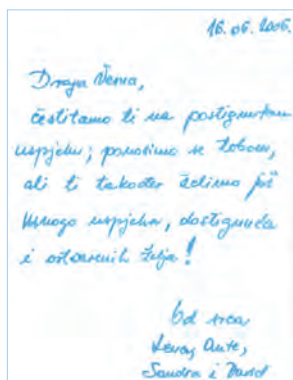 16. 06. 2006.
Draga
čestitamo ti na postignutom
uspjehu; ponosimo se tobom,
ali ti također želimo još
mnogo uspjeha, dostignuća
i ostvarenih želja!
Od srca
Ante,
Sandra i David